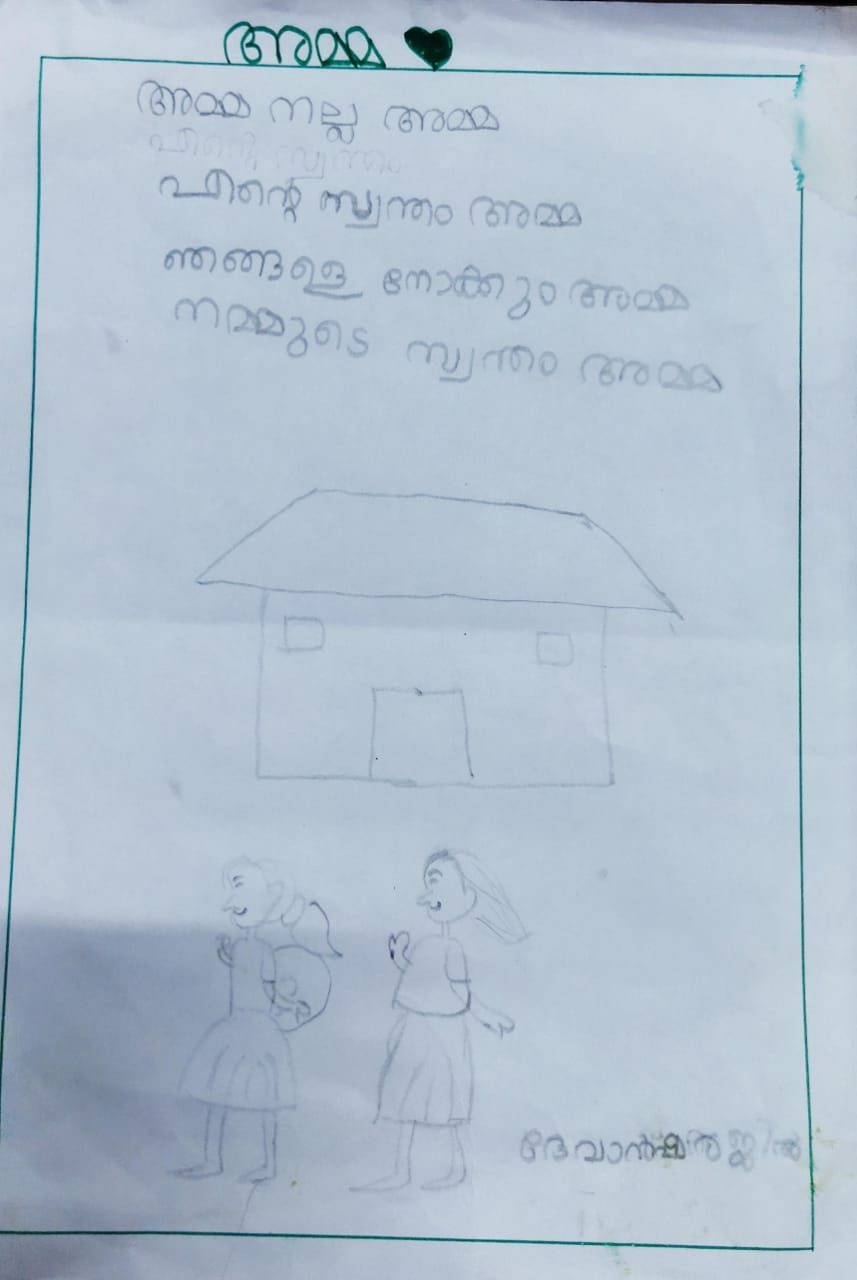 അമ്മ
അമ്മ നല്ല അമ്മ
എന്റെ സ്വന്തം
എന്റെ സ്വന്തം അമ്മ
ഞങ്ങളെ നോക്കും അമ്മ
നമ്മുടെ സ്വന്തം അമ്മ